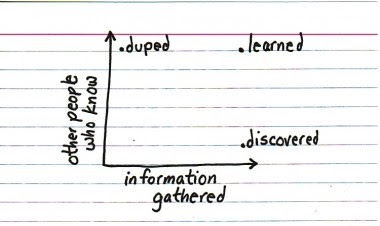 .duped
.learned
other people
who know
.discovered
information
gathered